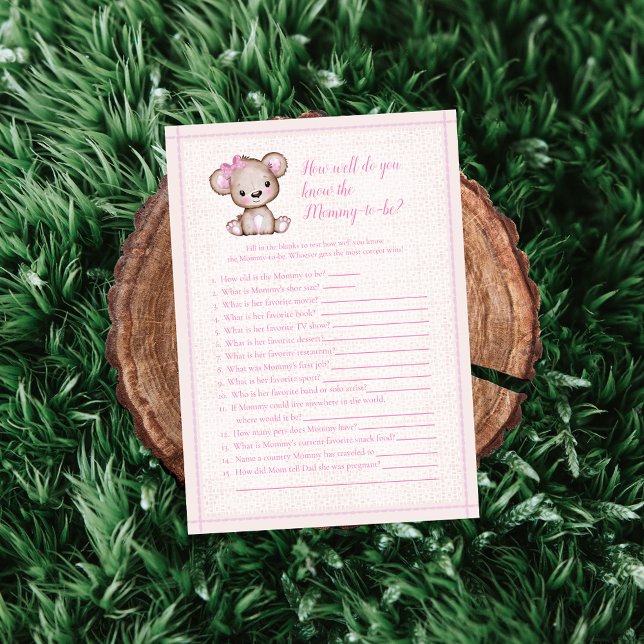 How well do you
know the
Mommy-to-be?
Fill in the blanks to test how well you know
the Mommy-to-be. Whoever gets the most correct wins!
1. How old is the Mommy to be?
2. What is Mommy's shoe size?
3. What is her favorite movie?
4. What is her favorite book?
5. What is her favorite TV show?
6. What is her favorite dessert
7. What is her favorite restaurant?
8. What was Mommy's first job?
9. What is her favorite sport?
10. Who is her favorite band or solo artist?
11. If Mommy could live anywhere in the world,
where would it be?
12. How many pets does Mommy have?
13. What is Mommy's current favorite snack food?
14. Name a country Mommy has traveled to
15. How did Mom tell Dad she was pregnant?